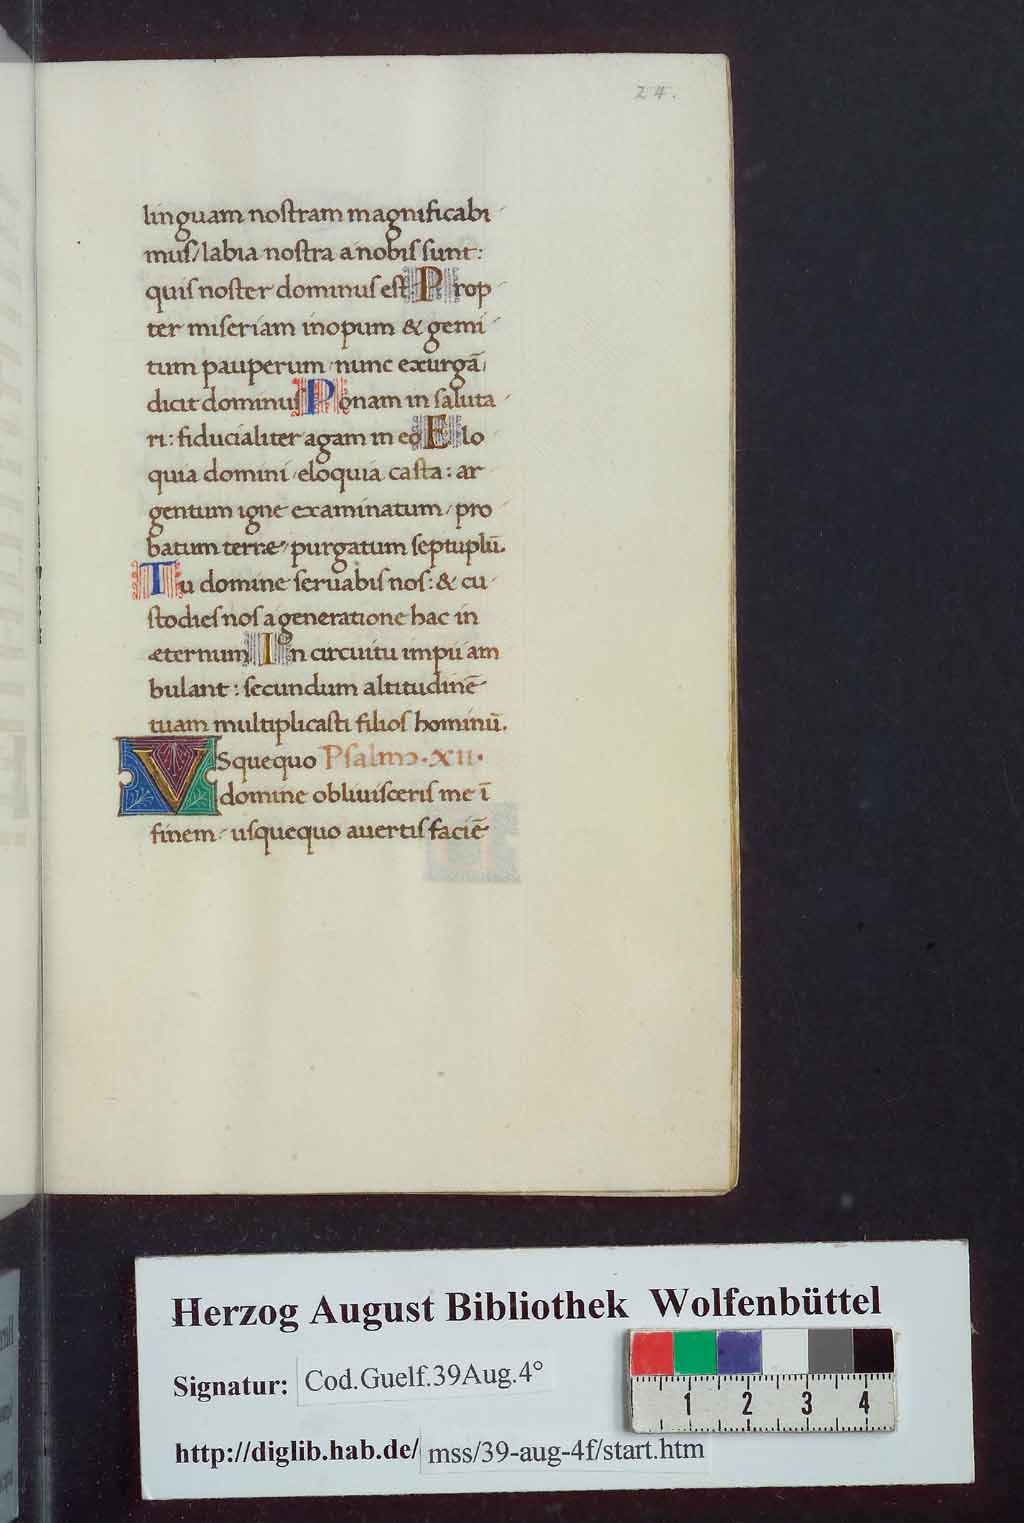 24.
linguam nostram magnificabi
mus/labia nostra a nobis sunt:
quis noster dominus est. Prop
ter miseriam inopum & gemi
tum pauperum/nunc exurgā
dicit dominus Ponam in saluta
ri: fiducialiter agam in eo Elo
quia domini/eloquia casta: ar
gentum igne examinatum/pro
batum terræ/purgatum septuplū.
Tu domine seruabis nos: & cu
stodies nos a generatione hac in
æternum In circuitu impii am
bulant: secundum altitudinē
tuam multiplicasti filios hominū.
VSquequo Psalmo.XII.
domine obliuisceris me ī
finem/usquequo auertis faciē
Herzog August Bibliothek Wolfenbüttel
Signatur: Cod.Guelf.39Aug.4°
1 2 3 4
http://diglib.hab.de/ mss/39-aug-4f/start.htm